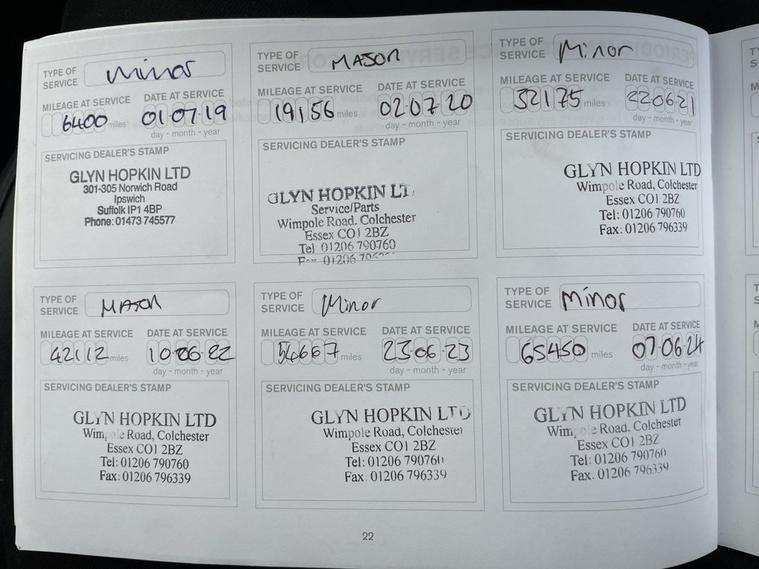 TYPE OF SERVICE Minor
MILEAGE AT SERVICE DATE AT SERVICE
6400 miles 01 07 19
day - month - year
SERVICING DEALER'S STAMP
GLYN HOPKIN LTD
301-305 Norwich Road
Ipswich
Suffolk IP1 4BP
Phone: 01473 745577
TYPE OF SERVICE MAJOR
MILEAGE AT SERVICE DATE AT SERVICE
19156 miles 02 07 20
day - month - year
SERVICING DEALER'S STAMP
GLYN HOPKIN LT
Service/Parts
Wimpole Road, Colchester
Essex CO1 2BZ
Tel 01206 790760
01206
TYPE OF SERVICE Minor
MILEAGE AT SERVICE DATE AT SERVICE
32175 miles 22 06 21
day - month - year
SERVICING DEALER'S STAMP
GLYN HOPKIN LTD
Wimpole Road, Colchester
Essex CO1 2BZ
Tel: 01206 790760
Fax: 01206 796339
TYPE OF SERVICE MAJOR
MILEAGE AT SERVICE DATE AT SERVICE
42112 miles 10 06 22
day - month - year
SERVICING DEALER'S STAMP
GLYN HOPKIN LTD
Wimpole Road, Colchester
Essex CO1 2BZ
Tel: 01206 790760
Fax: 01206 796339
TYPE OF SERVICE Minor
MILEAGE AT SERVICE DATE AT SERVICE
54667 miles 23 06 23
day - month - year
SERVICING DEALER'S STAMP
GLYN HOPKIN LTD
Wimpole Road, Colchester
Essex CO1 2BZ
Tel: 01206 790760
Fax: 01206 796339
TYPE OF SERVICE Minor
MILEAGE AT SERVICE DATE AT SERVICE
65450 miles 07 06 24
day - month - year
SERVICING DEALER'S STAMP
GLYN HOPKIN LTD
Wimpole Road, Colchester
Essex CO1 2BZ
Tel: 01206 790760
Fax: 01206 796339
22